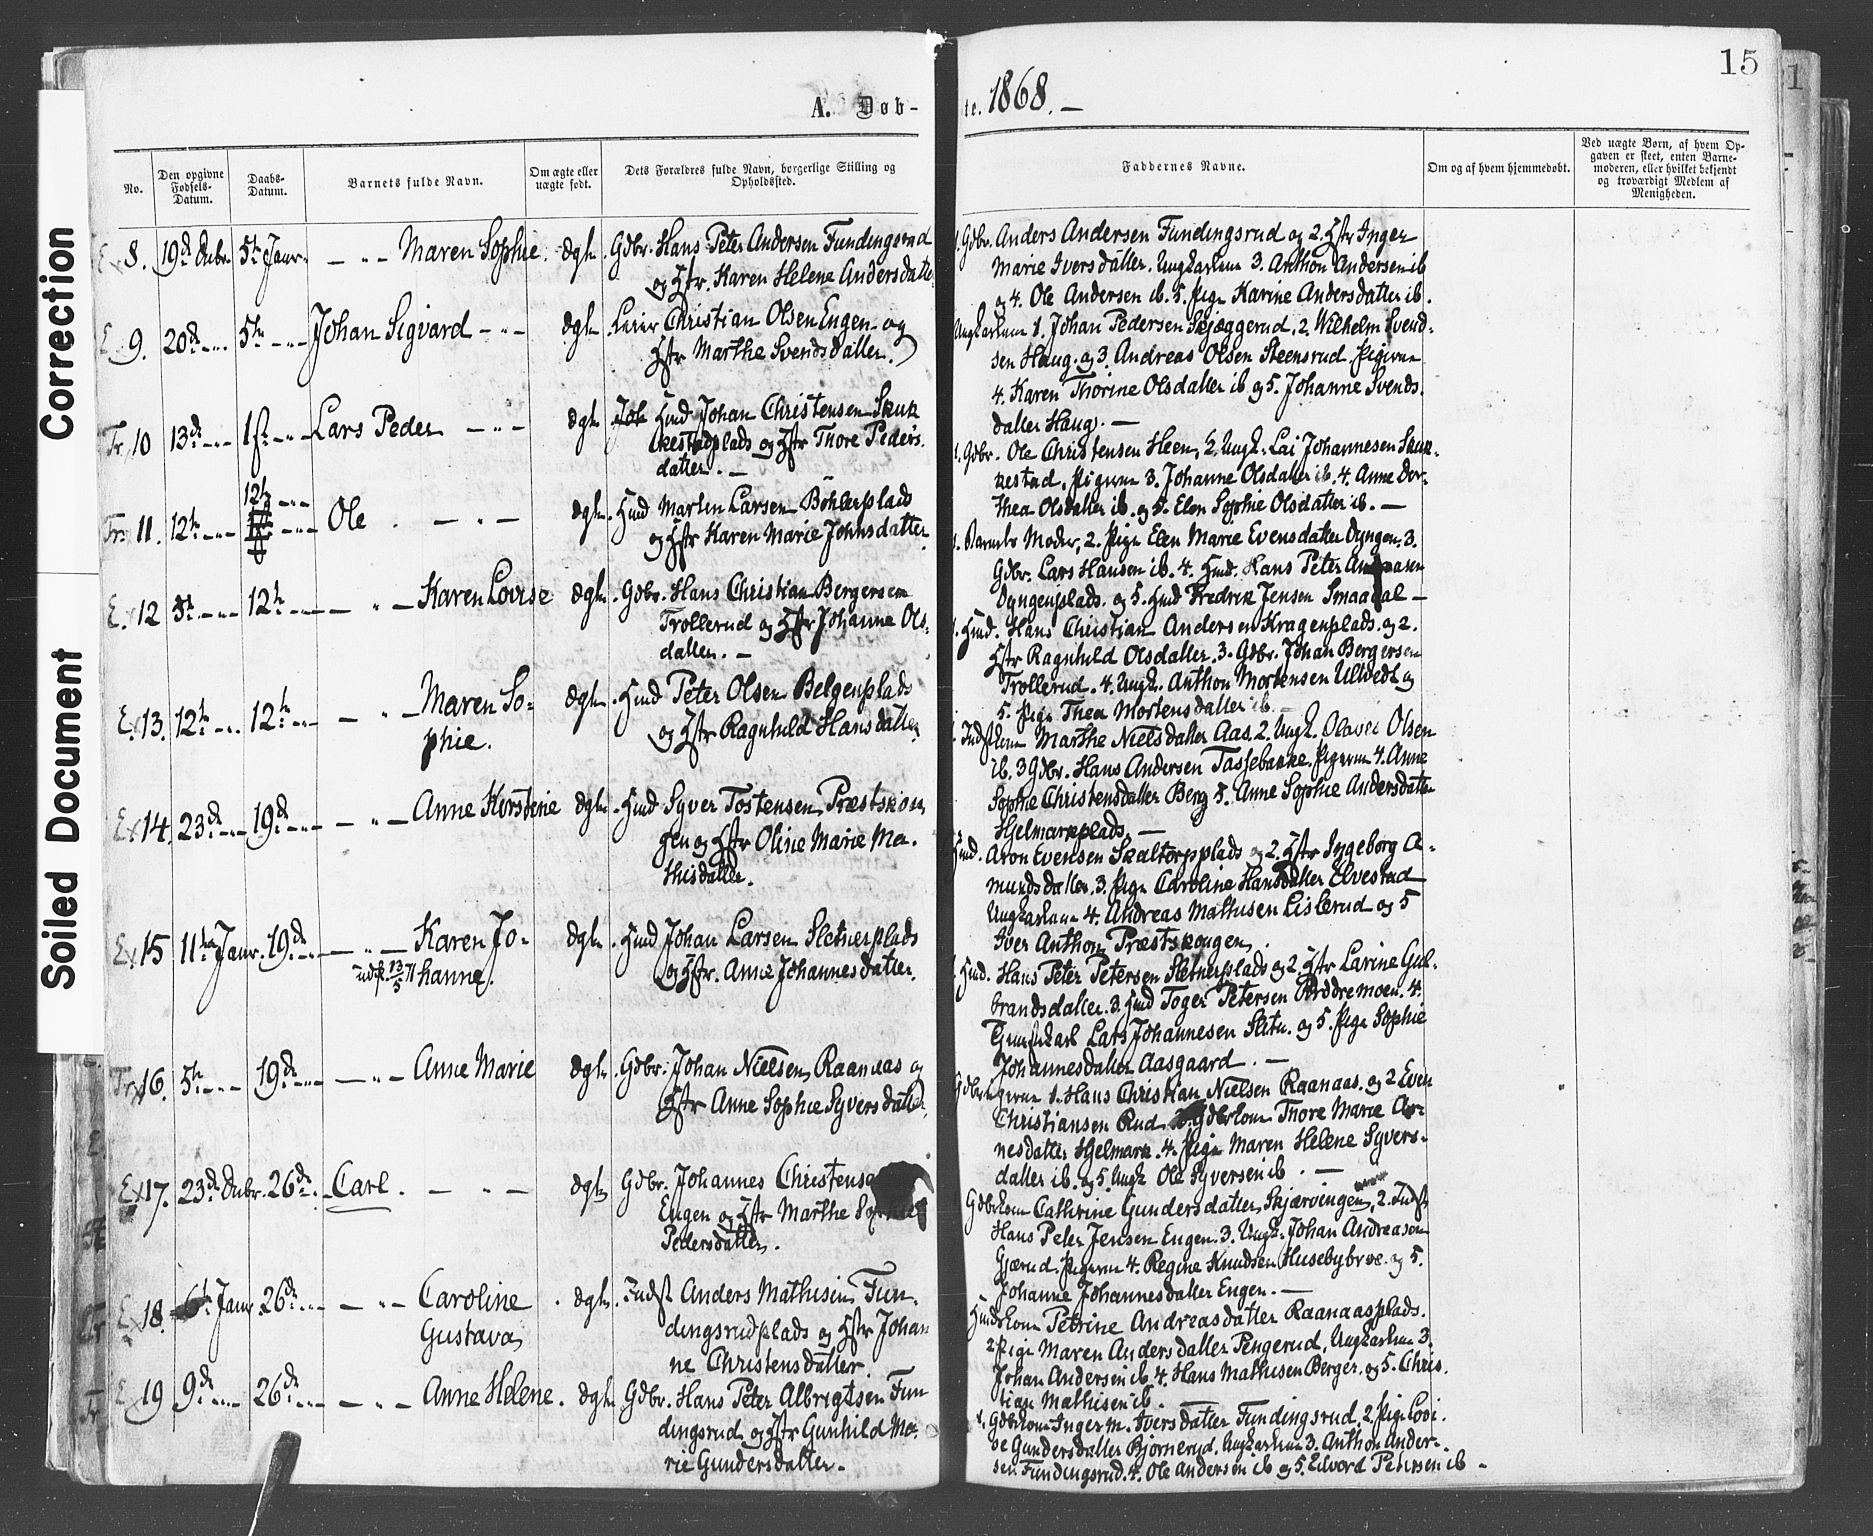 Correction
Soiled Document
15
A. Døb-
te. 1868. —
No.
Den opgivne Fødsels-Datum.
Daabs-Datum.
Barnets fulde Navn.
Om ægte eller uægte født.
Dets Forældres fulde Navn, borgerlige Stilling og Opholdssted.
Faddernes Navne.
Om og af hvem hjemmedøbt.
Ved uægte Børn, af hvem Opgaven er skeet, enten Barnemoderen, eller hvilket bekjendt og troværdigt Medlem af Menigheden.
8. 19de Dcbr 5te Janr. — „ — Maren Sophie. ægte. Gdbr. Hans Peter Andersen Fundingsrud
og Hstr. Karen Helene Andersdatter
1. Gdbr. Anders Andersen Fundingsrud og 2. Hstr Inger
Marie Iversdatter. Ungkarlene 3. Anthon Andersen ib
og 4. Ole Andersen ib. 5. Pige Karine Andersdatter ib.
9. 20de 5te Johan Sigvard — „ — ægte Leier Christian Olsen Engen og
Hstr Marthe Svendsdatter.
Ungkarlene 1. Johan Pedersen Skjæggerud, 2. Wilhelm Svend-
sen Haug. og 3. Andreas Olsen Steensrud. Pigerne
4. Karen Thorine Olsdatter ib og 5. Johanne Svends.
datter Haug. —
Fr. 10 13de 1ste Lars Peder — „ — ægte Hmd Johan Christensen Skuk
kestadplads og Hstr Thore Peders.
datter. —
1. Gdbr. Ole Christensen Heen, 2. Ungk. Lai Johannesen Skuk-
kestad, Pigerne 3. Johanne Olsdatter ib. 4. Anne Dor-
thea Olsdatter ib. og 5. Elen Sophie Olsdatter ib. —
Fr. 11. 12te 12te Ole — „ — ægte. Hmd Marten Larsen Böhlerplads
og Hstr Karen Marie Johnsdatter.
1. Barnets Moder, 2. Pige Elen Marie Evensdatter Dyngen. 3.
Gdbr. Lars Hansen ib. 4. Hmd. Hans Peter
Dyngenplads. og 5. Hmd Fredrik Jensen Smaadal —
E. 12 12te — „ — Karen Lovise ægte. Gdbr. Hans Christian Bergersen
Trollerud og Hstr Johanne Ols-
datter. —
1. Hmd. Hans Christian Andersen Kragenplads. og 2.
Hstr Ragnhild Olsdatter. 3. Gdbr. Johan Bergersen
Trollerud. 4. Ungk. Anthon Mortensen Ultvedt og
5. Pige Thea Mortensdatter ib. —
E. 13. 12te 12te — „ — Maren So-
phie. ægte. Hmd Peter Olsen Belgenplads
og Hstr Ragnhild Hansdatter
Marthe Nielsdatter Aas. 2. Ungk. Olaves Olsen
ib. 3 Gdbr. Hans Andersen Tassebakke. Pigerne 4. Anne
Sophie Christensdatter Berg 5. Anne Sophie Andersdatter
Hjelmarkplads. —
E. 14. 23de 19de — „ — Anne Kirstine ægte. Hmd Syver Tostensen Præstskou
gen og Hstr Oline Marie Ma-
thisdatter.
Hmd. Aron Evensen Skaltorpplads og 2. Hstr Ingeborg A-
mundsdatter. 3. Pige Caroline Hansdatter Elvestad
Ungkarlene 4. Andreas Mathisen Lislerud og 5
Iver Anthon Præstskougen.
15 11te Janr. 19de — „ — Karen Jo-
hanne. ægte. Hmd Johan Larsen Sletnerplads
udsk. 13/5 71
og Hstr. Anne Johannesdatter.
1. Hmd. Hans Peter Petersen Sletnerplads og 2. Hstr Larine Gul-
brandsdatter. 3. Hmd Toger Petersen 4.
Lars Johannesen Sletn. og 5. Pige Sophie
Johannesdatter Aasgaard. —
Fr. 16. 5te 19de — „ — Anne Marie ægte. Gdbr. Johan Nielsen Raanaas og
Hstr Anne Sophie Syversdatter.
Gdbrugerne 1. Hans Christian Nielsen Raanaas. og 2 Even
Christiansen Rud. 3. Gdbrkone Thore Marie Ar-
nesdatter Hjelmark. 4. Pige Maren Helene Syvers-
datter ib. og 5. Ungk Ole Syversen ib. —
17. 23de Dcbr. 26de Carl. — „ — ægte Gdbr. Johannes Christensen
Engen og Hstr Marthe Sophie
Pedersdatter.
Gdbrkone Cathrine Gundersdatter Skjærvingen, 2. Indst
Hans Peter Jensen Engen. 3. Ungk. Johan Andreasen
Gjærud. Pigerne 4. Regine Knudsen Husebybroe. og 5.
Johanne Johannesdatter Engen. —
18. 6te Janr 26de — „ — Caroline
Gustava ægte. Indst Anders Mathisen Fun-
dingsrudplads og Hstr Johan
ne Christensdatter
Hmdskone Petrine Andreasdatter Raanaasplads.
2 Pige Maren Andersdatter Pengerud, Ungkarlene 3.
Johan Andersen ib. 4. Hans Mathisen Berger. og 5. Chris.
tian Mathisen ib.
19 9de 26de — „ — Anne Helene. ægte Gdbr. Hans Peter Albrigtsen Fun
dingsrud og Hstr Gunhild Ma-
rie Gundersdatter. —
1. Gdbrkone Inger M. Iversdatter Fundingsrud, 2. Pige Lovi-
se Gundersdatter Bjørnerud. Ungkarlene 3. Anthon Ander-
sen Fundingsrud. 4. Ole Andersen ib og 5. Edvard Petersen ib -